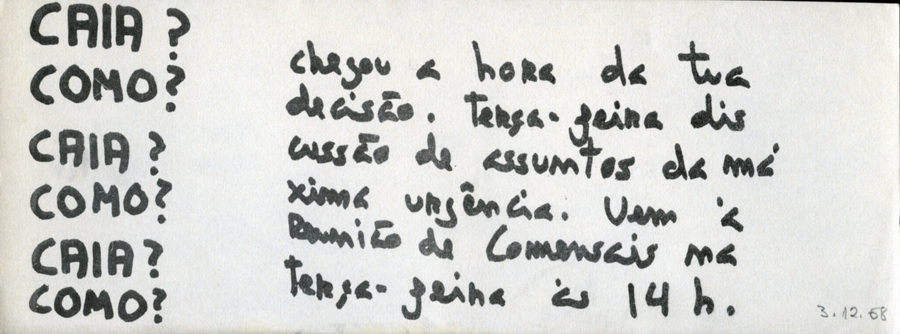 CAIA?
COMO?
CAIA?
COMO?
CAIA?
COMO?
chegou a hora da tua
decisão. terça-feira dis
cussão de assuntos da má
xima urgência. Vem à
Reunião de Comensais na
terça-feira às 14 h.
3.12.68